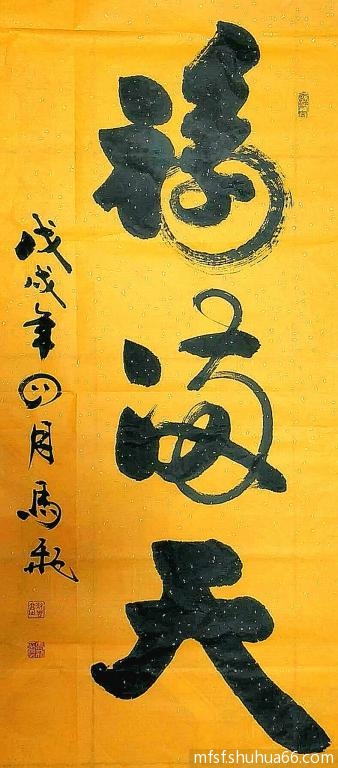 福满天
戊戌年四月馬
mfsf.shuhua66.com